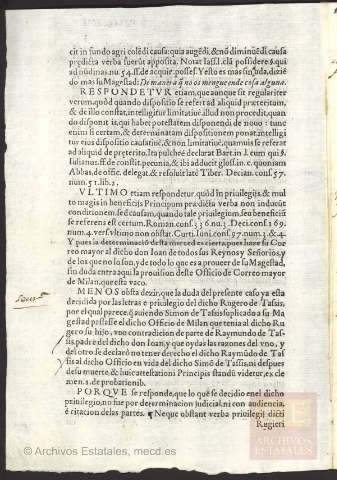 cit in fundo agri colēdi causa: quia augēdi, & nō diminuēdi causa
prædicta verba fuerūt apposita. Notat Iass. l. clā possidere §. qui
ad nūdinas. nu. 54. ff. de acquir. posses. Y esto es mas sin duda, diziē
do mas su Magestad: De manera q̄ no os mengue nde cosa alguna.
RESPONDETVR etiam, que aunque sit regulariter
verum, quòd quando dispositio se refert ad aliquid præteritum,
& de illo constat, intelligitur limitatiuè. illud non procedit, quan
do disponens, qui habet potestatem disponendi de nouo: tunc
enim si certam, & determinatam dispositionem ponat, intelligi
tur eius dispositio causatiuè, & non limitatiuè, quamuis se referat
ad aliquid de preterito. Ita pulchrè declarat Bart. in l. cum qui §.
Iulianus. ff. de constit. pecunia, & ibi adducit gloss. in c. quoniam
Abbas, de offic. delegat. & resoluit latè Tiber. Decian. cons. 57.
num. 51. lib. 2.
VLTIMO etiam respondetur, quòd in priuilegijs, & mul
to magis in beneficijs Principum prædicta verba non inducūt
conditionem, se d causam, quando tale priuilegium, seu beneficiū
se referens est certum. Roman. cons. 336. nu. 3. Deci. cons. 369.
num. 4. vers. vltimo non obstat. Curt. Iuni. cons. 97. num. 3. & 4.
Y pues la determinaciō desta merced es cierta, pues haze su Cor
reo mayor al dicho don Ioan de todos sus Reynos y Señorios, y
de los que no lo son, y de todo lo que es a proueer de su Magestad,
sin duda entra aqui la prouision deste Officio de Correo mayor
de Milan, que esta vaco.
MENOS obsta dezir, que la duda del presente caso ya esta
decidida por las letras è priuilegio del dicho Rugero de Tassis,
por el qual parece, q̄ auiendo Simon de Tassis suplicado a su Ma
gestad prſsasse el dicho Officio de Milan que tenia al dicho Ru
gero su hijo, vuo contradicion de parte de Raymundo de Tas-
sis, padre del dicho don Ioan, y que oydas las razones del vno, y
del otro se declarò no tener derecho el dicho Raymūdo de Tas
sis al dicho Officio en vida del dicho Simō de Tassis, ni despues
de su muerte & huic attestationi Principis standū videtur, ex cle
men. 1. de probationib.
PORQVE se responde, que lo que se decidio en el dicho
priuilegio, no fue por determinacion judicial, ni con audiencia,
è citacion de las partes. Neque obstant verba priuilegij dicti
Regieri
ARCHIVOS
ESTATALES
© Archivos Estatales, mecd.es